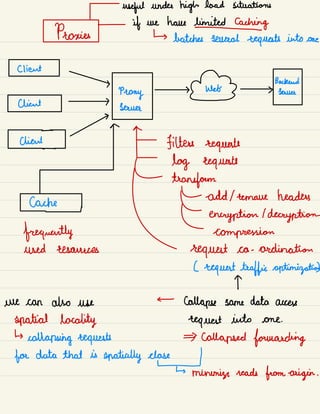 useful under high load situations
Proxies
if we have limited Caching
↳ batches several requests into one
Client
Client
Client
Proxy Server
Web
Backend Server
Cache
filters requests
log requests
transform
add / remove headers
encryption / decryption
compression
frequently
used resources
request co-ordination
( request traffic optimization)
we can also use
spatial locality
↳ collapsing requests
for data that is spatially close
← Collapse same data access
request into one.
⇒ Collapsed forwarding
↳ minimize reads from origin.